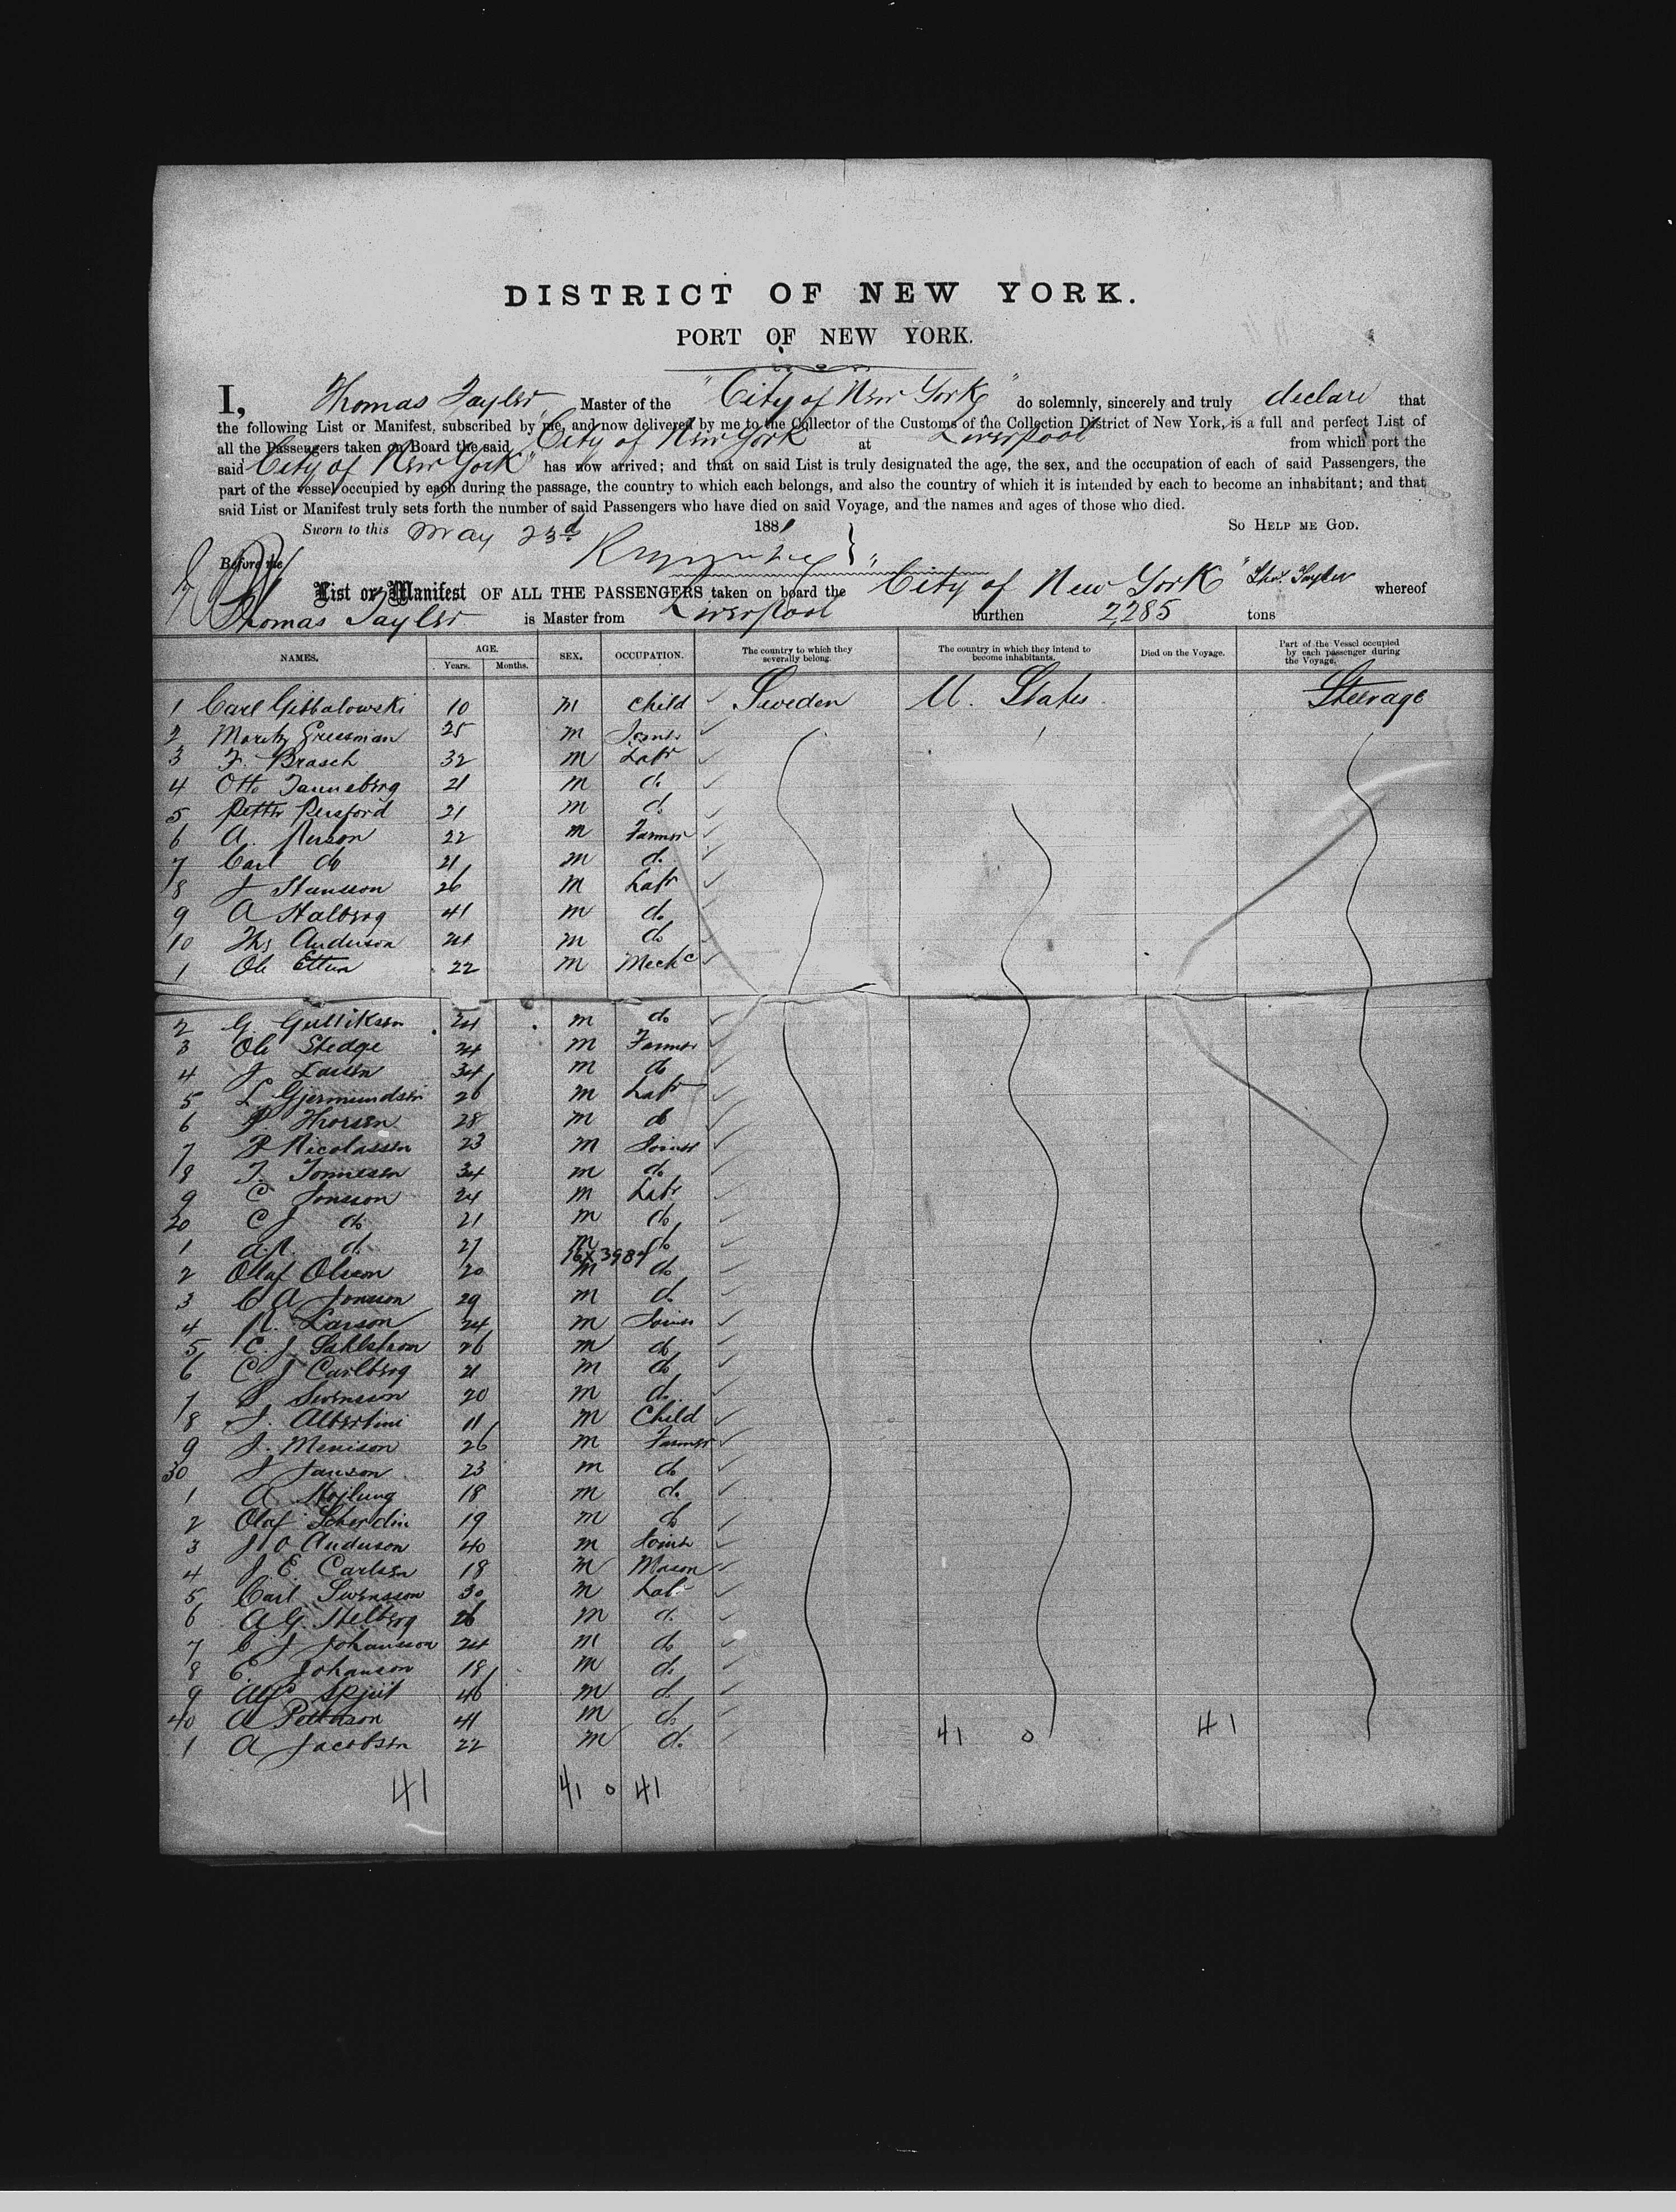 DISTRICT OF NEW YORK.
PORT OF NEW YORK.
I, Thomas Tayler Master of the "City of New York" do solemnly, sincerely and truly declare that
the following List or Manifest, subscribed by me, and now delivered by me to the Collector of the Customs of the Collection District of New York, is a full and perfect List of
all the Passengers taken on Board the said City of New York at Liverpool from which port the
said City of New York" has now arrived; and that on said List is truly designated the age, the sex, and the occupation of each of said Passengers, the
part of the vessel occupied by each during the passage, the country to which each belongs, and also the country of which it is intended by each to become an inhabitant; and that
said List or Manifest truly sets forth the number of said Passengers who have died on said Voyage, and the names and ages of those who died.
Sworn to this May 23d 1881 SO HELP ME GOD.
Before me
List or Manifest OF ALL THE PASSENGERS taken on board the City of New York" Thos. Tayler whereof
Thomas Tayler is Master from Liverpool burthen 2,285 tons
NAMES. AGE. Years. Months. SEX. OCCUPATION. The country to which they severally belong. The country in which they intend to become inhabitants. Died on the Voyage. Part of the Vessel occupied by each passenger during the Voyage.
1 Carl Gibbalowski 10 m child Sweden U. States Steerage
2 Moritz Gressman 25 m Joiner
3 F. Brasch 32 m Labr
4 Otto Tanneberg 21 m do
5 Petter Persford 21 m do
6 A. Person 22 m Farmer
7 Carl do 21 m do
8 J Stansson 26 m Labr
9 A Halberg 41 m do
10 Ths Anderson 21 m do
1 Ole Etten 22 m Mechc
2 G. Gullikson 24 m do
3 Ole Stedge 24 m Farmer
4 J Larsen 34 m do
5 L Gjermundsen 26 m Labr
6 P. Thorsen 28 m do
7 P Nicolassen 23 m Joiner
8 T. Tonnesen 34 m do
9 C Jonsson 24 m Labr
20 C J do 21 m do
1 A.P. do 27 m do
16X3984
2 Olaf Olsson 20 m do
3 C A Jonsson 29 m do
4 P. Larson 24 m Joiner
5 C. J. Sahlstrom 26 m do
6 C. J Carlberg 21 m do
7 P Swensson 20 m do
8 J. Albertini 11 m Child
9 J. Menison 26 m Farmer
30 J Janson 23 m do
1 A 18 m do
2 Olaf Scherdin 19 m do
3 J O Anderson 40 m Joiner
4 J. E. Carlsen 18 m Mason
5 Carl Swensson 30 m Labr
6 A G. Stelberg 26 m do
7 C. J Johansson 24 m do
8 E. Johanson 18 m do
9 Alfd Spjut 46 m do
40 A Petterson 41 m do
1 A Jacobsen 22 m do 41 0 41
41 41 0 41